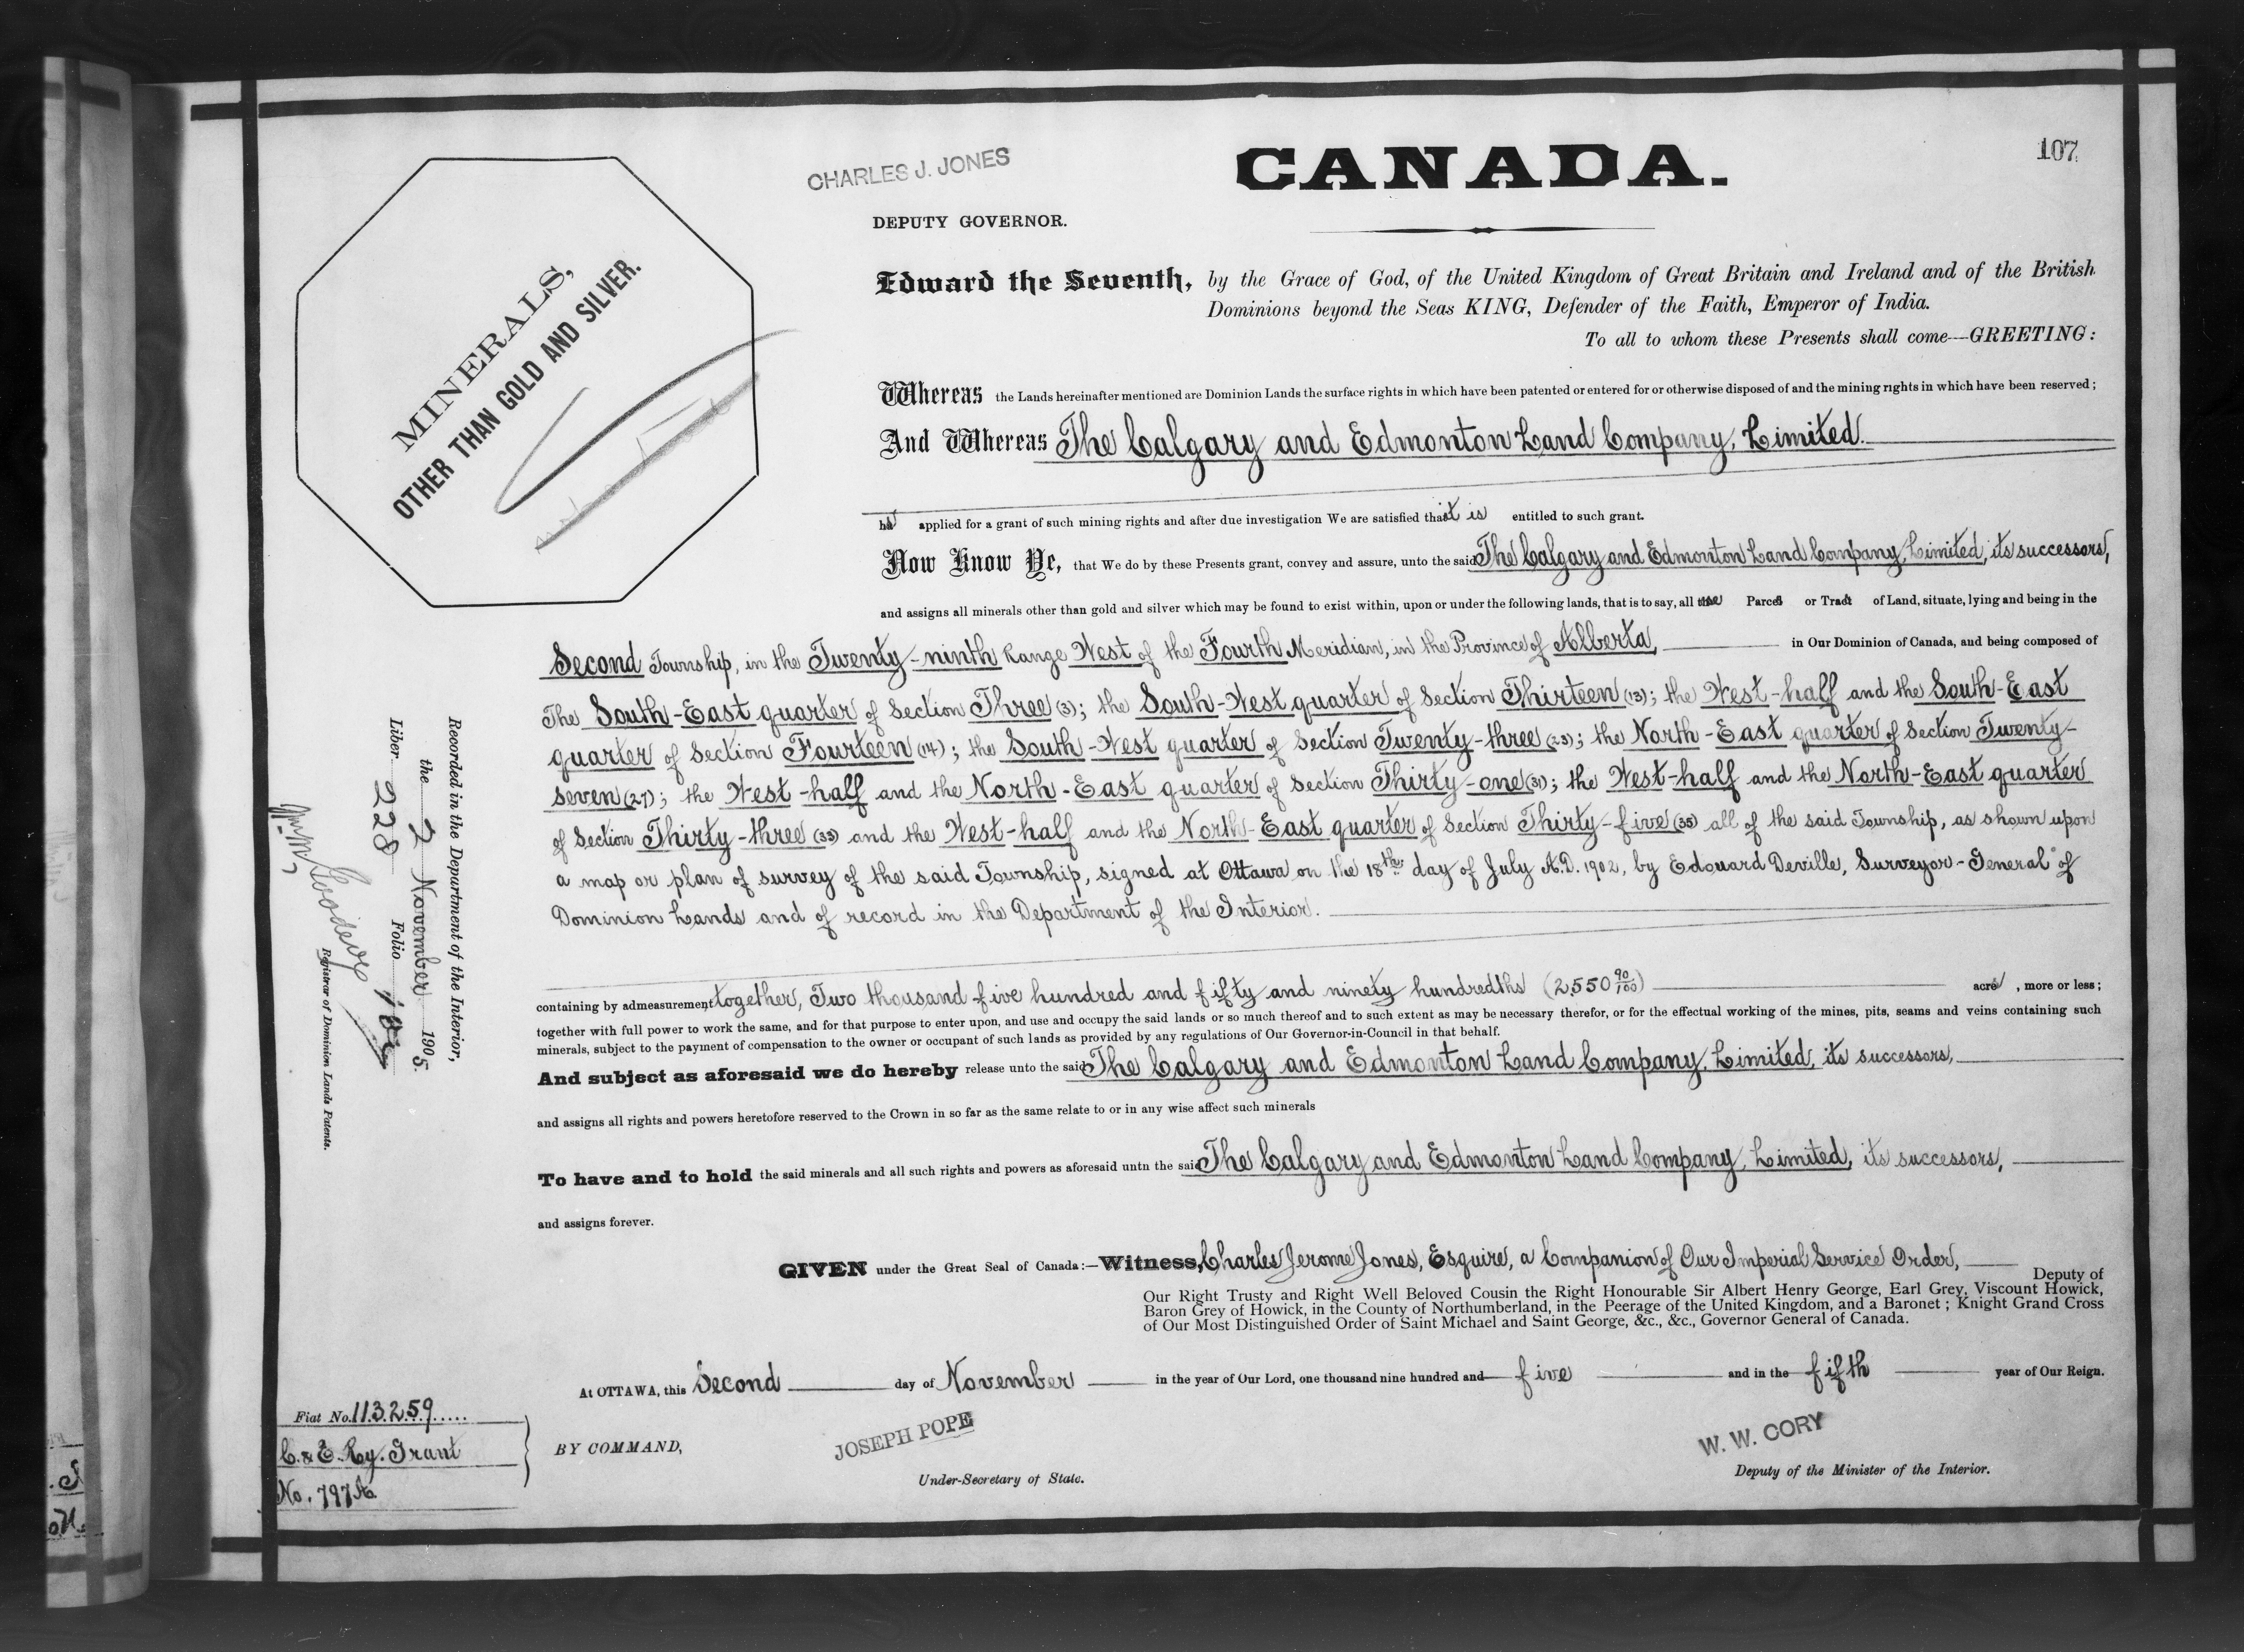 107
CANADA.
CHARLES J. JONES
DEPUTY GOVERNOR.
MINERALS,
OTHER THAN GOLD AND SILVER.
Edward the Seventh, by the Grace of God, of the United Kingdom of Great Britain and Ireland and of the British
Dominions beyond the Seas KING, Defender of the Faith, Emperor of India.
To all to whom these Presents shall come—GREETING:
Whereas the Lands hereinafter mentioned are Dominion Lands the surface rights in which have been patented or entered for or otherwise disposed of and the mining rights in which have been reserved;
And Whereas The Calgary and Edmonton Land Company, Limited.
has applied for a grant of such mining rights and after due investigation We are satisfied that it is entitled to such grant.
Now Know Ye, that We do by these Presents grant, convey and assure, unto the said The Calgary and Edmonton Land Company, Limited, its successors,
and assigns all minerals other than gold and silver which may be found to exist within, upon or under the following lands, that is to say, all those Parcels or Tracts of Land, situate, lying and being in the
Second Township, in the Twenty-ninth Range West of the Fourth Meridian, in the Province of Alberta, in Our Dominion of Canada, and being composed of
The South-East quarter of Section Three (3); the South-West quarter of Section Thirteen (13); the West-half and the South-East
quarter of Section Fourteen (14); the South-West quarter of Section Twenty-three (23); the North-East quarter of Section Twenty-
seven (27); the West-half and the North-East quarter of Section Thirty-one (31); the West-half and the North-East quarter
of Section Thirty-three (33) and the West-half and the North-East quarter of Section Thirty-five (35) all of the said Township, as shown upon
a map or plan of survey of the said Township, signed at Ottawa on the 18th day of July A.D. 1902, by Edouard Deville, Surveyor-General of
Dominion Lands and of record in the Department of the Interior.
containing by admeasurement together, Two thousand five hundred and fifty and ninety hundredths (2,550 90/100) acres, more or less;
together with full power to work the same, and for that purpose to enter upon, and use and occupy the said lands or so much thereof and to such extent as may be necessary therefor, or for the effectual working of the mines, pits, seams and veins containing such
minerals, subject to the payment of compensation to the owner or occupant of such lands as provided by any regulations of Our Governor-in-Council in that behalf.
And subject as aforesaid we do hereby release unto the said The Calgary and Edmonton Land Company, Limited, its successors,
and assigns all rights and powers heretofore reserved to the Crown in so far as the same relate to or in any wise affect such minerals
To have and to hold the said minerals and all such rights and powers as aforesaid untn the said The Calgary and Edmonton Land Company, Limited, its successors,
and assigns forever.
GIVEN under the Great Seal of Canada:—Witness, Charles Jerome Jones, Esquire, a Companion of Our Imperial Service Order, Deputy of
Our Right Trusty and Right Well Beloved Cousin the Right Honourable Sir Albert Henry George, Earl Grey, Viscount Howick,
Baron Grey of Howick, in the County of Northumberland, in the Peerage of the United Kingdom, and a Baronet; Knight Grand Cross
of Our Most Distinguished Order of Saint Michael and Saint George, &c., &c., Governor General of Canada.
At OTTAWA, this Second day of November in the year of Our Lord, one thousand nine hundred and five and in the fifth year of Our Reign.
BY COMMAND,
JOSEPH POPE
Under-Secretary of State.
W. W. CORY
Deputy of the Minister of the Interior.
Recorded in the Department of the Interior,
the 2 November 1905
Liber 228 Folio
Registrar of Dominion Lands Patents.
Fiat No. 113259
C. & E. Ry. Grant
No. 797 A.